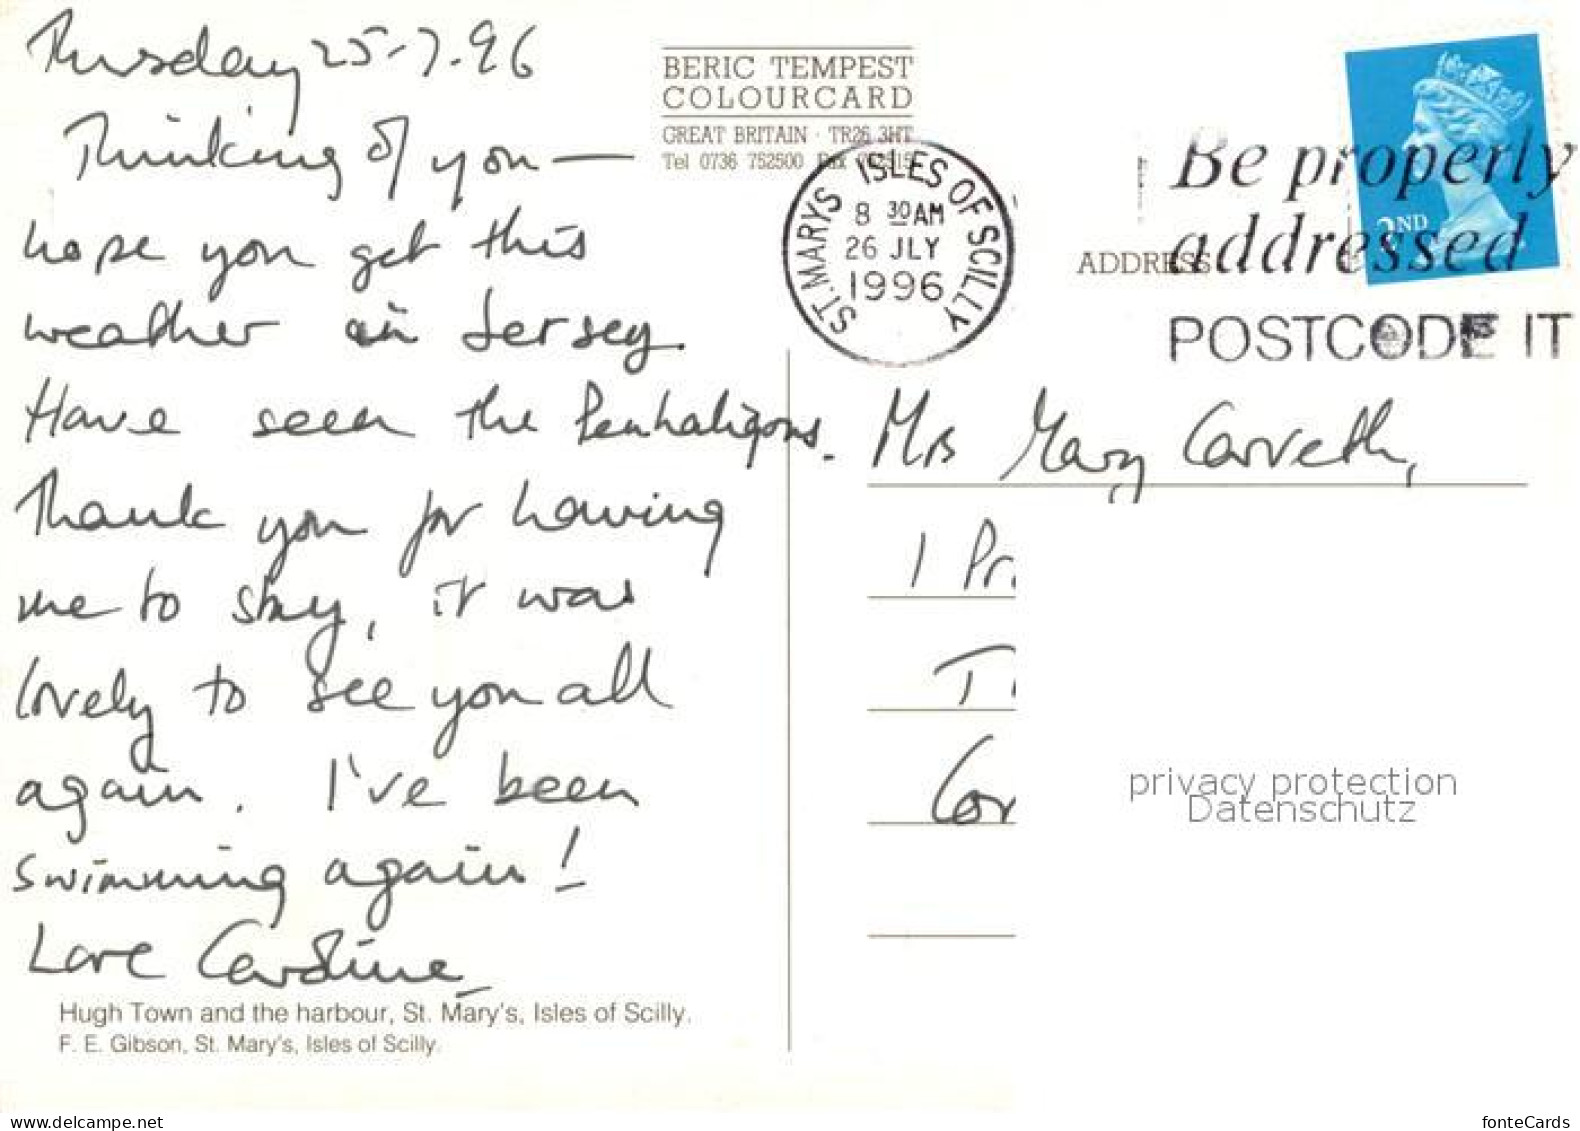 Thursday 25-7-96
Thinking of you —
hope you get this
weather in Jersey.
Have seen the Penhaligons.
Thank you for having
me to stay, it was
lovely to see you all
again. I've been
swimming again!
Love Caroline
Hugh Town and the harbour, St. Mary's, Isles of Scilly.
F. E. Gibson, St. Mary's, Isles of Scilly.
BERIC TEMPEST
COLOURCARD
GREAT BRITAIN · TR26 3HT
Tel 0736 752500 Fax
ST. MARYS ISLES OF SCILLY
8 30AM
26 JLY
1996
2ND
Be properly
addressed
POSTCODE IT
ADDRESS
Mrs Mary Carveth,
1 Pr
T
Cor
privacy protection
Datenschutz
www.delcampe.net
fonteCards